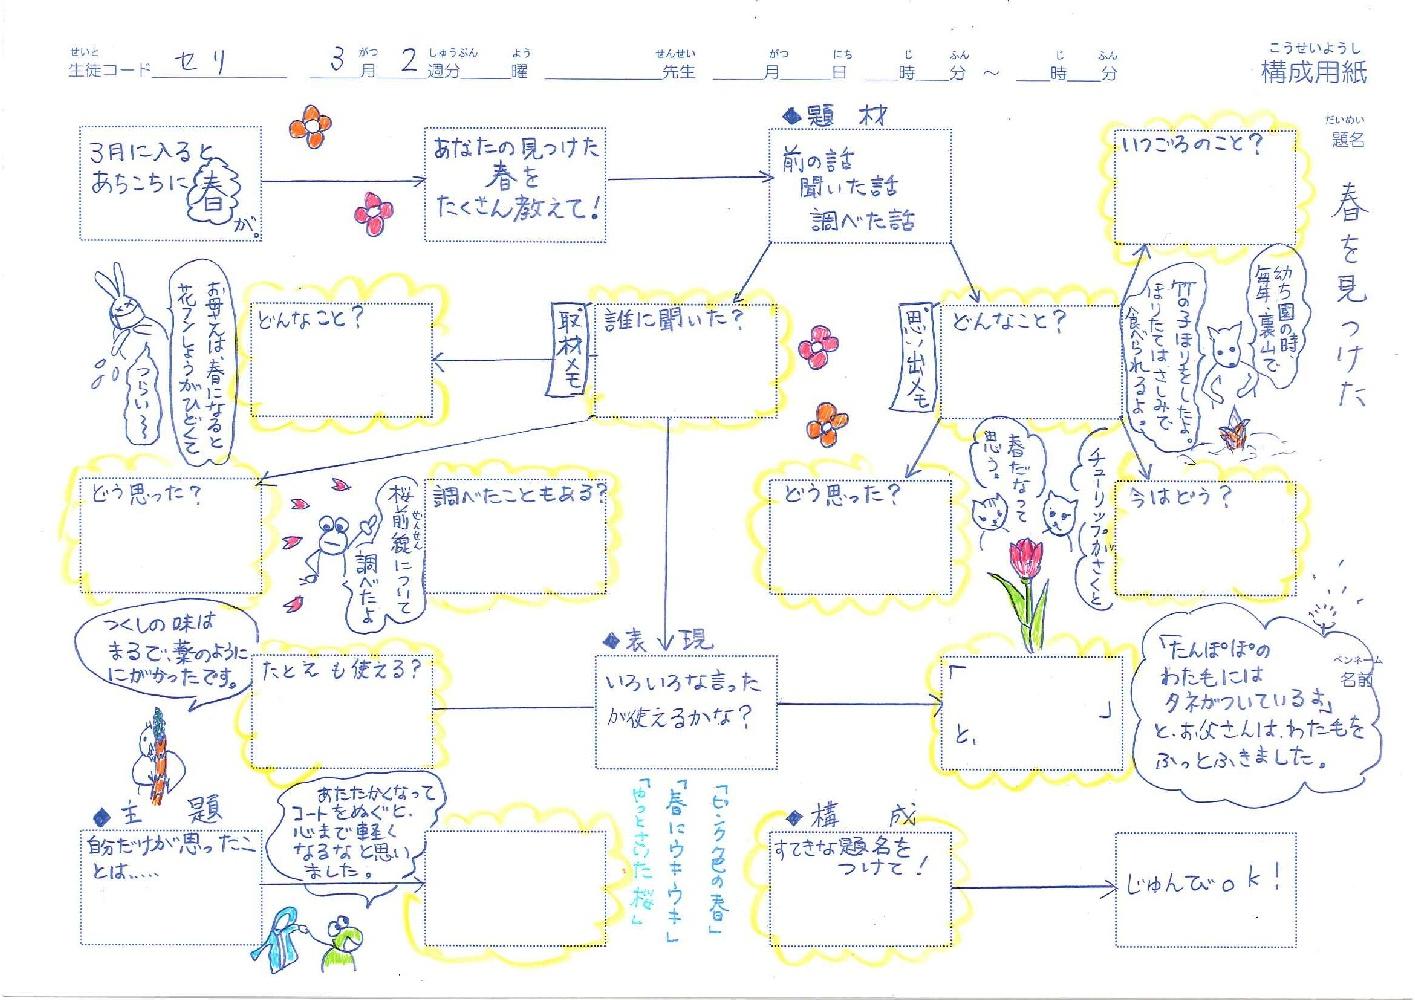 せいと
生徒コード セリ 3 がつ 月 2 しゅうぶん 週分 よう 曜 せんせい 先生 がつ 月 にち 日 じ 時 ふん 分 ～ じ 時 ふん 分
こうせいようし
構成用紙
だいめい
題名
春を見つけた
3月に入ると
あちこちに春
が。
あなたの見つけた
春を
たくさん教えて!
◆題 材
前の話
聞いた話
調べた話
いつごろのこと?
幼ち園の時、
毎年、裏山で
竹の子ほりをしたよ。
ほりたてはさしみで
食べられるよ。
お母さんは、春になると
花フンしょうがひどくて
つらい〜
どんなこと?
取材メモ
誰に聞いた?
思い出メモ
どんなこと?
どう思った?
桜前線について
ぜんせん
調べたよ
調べたこともある?
どう思った?
春だなって
思う。
チューリップがさくと
今はどう?
つくしの味は
まるで、薬のように
にがかったです。
たとえも使える?
◆表 現
いろいろな言った
が使えるかな?
「
」
と、
「たんぽぽの
わた毛には
タネがついているよ」
と、お父さんは、わた毛を
ふっとふきました。
ペンネーム
名前
◆主 題
自分だけが思ったこ
とは……
あたたかくなって
コートをぬぐと、
心まで軽く
なるなと思い
ました。
「ピンク色の春」
「春にウキウキ」
「やっとさいた桜」
◆構 成
すてきな題名を
つけて!
じゅんびok!